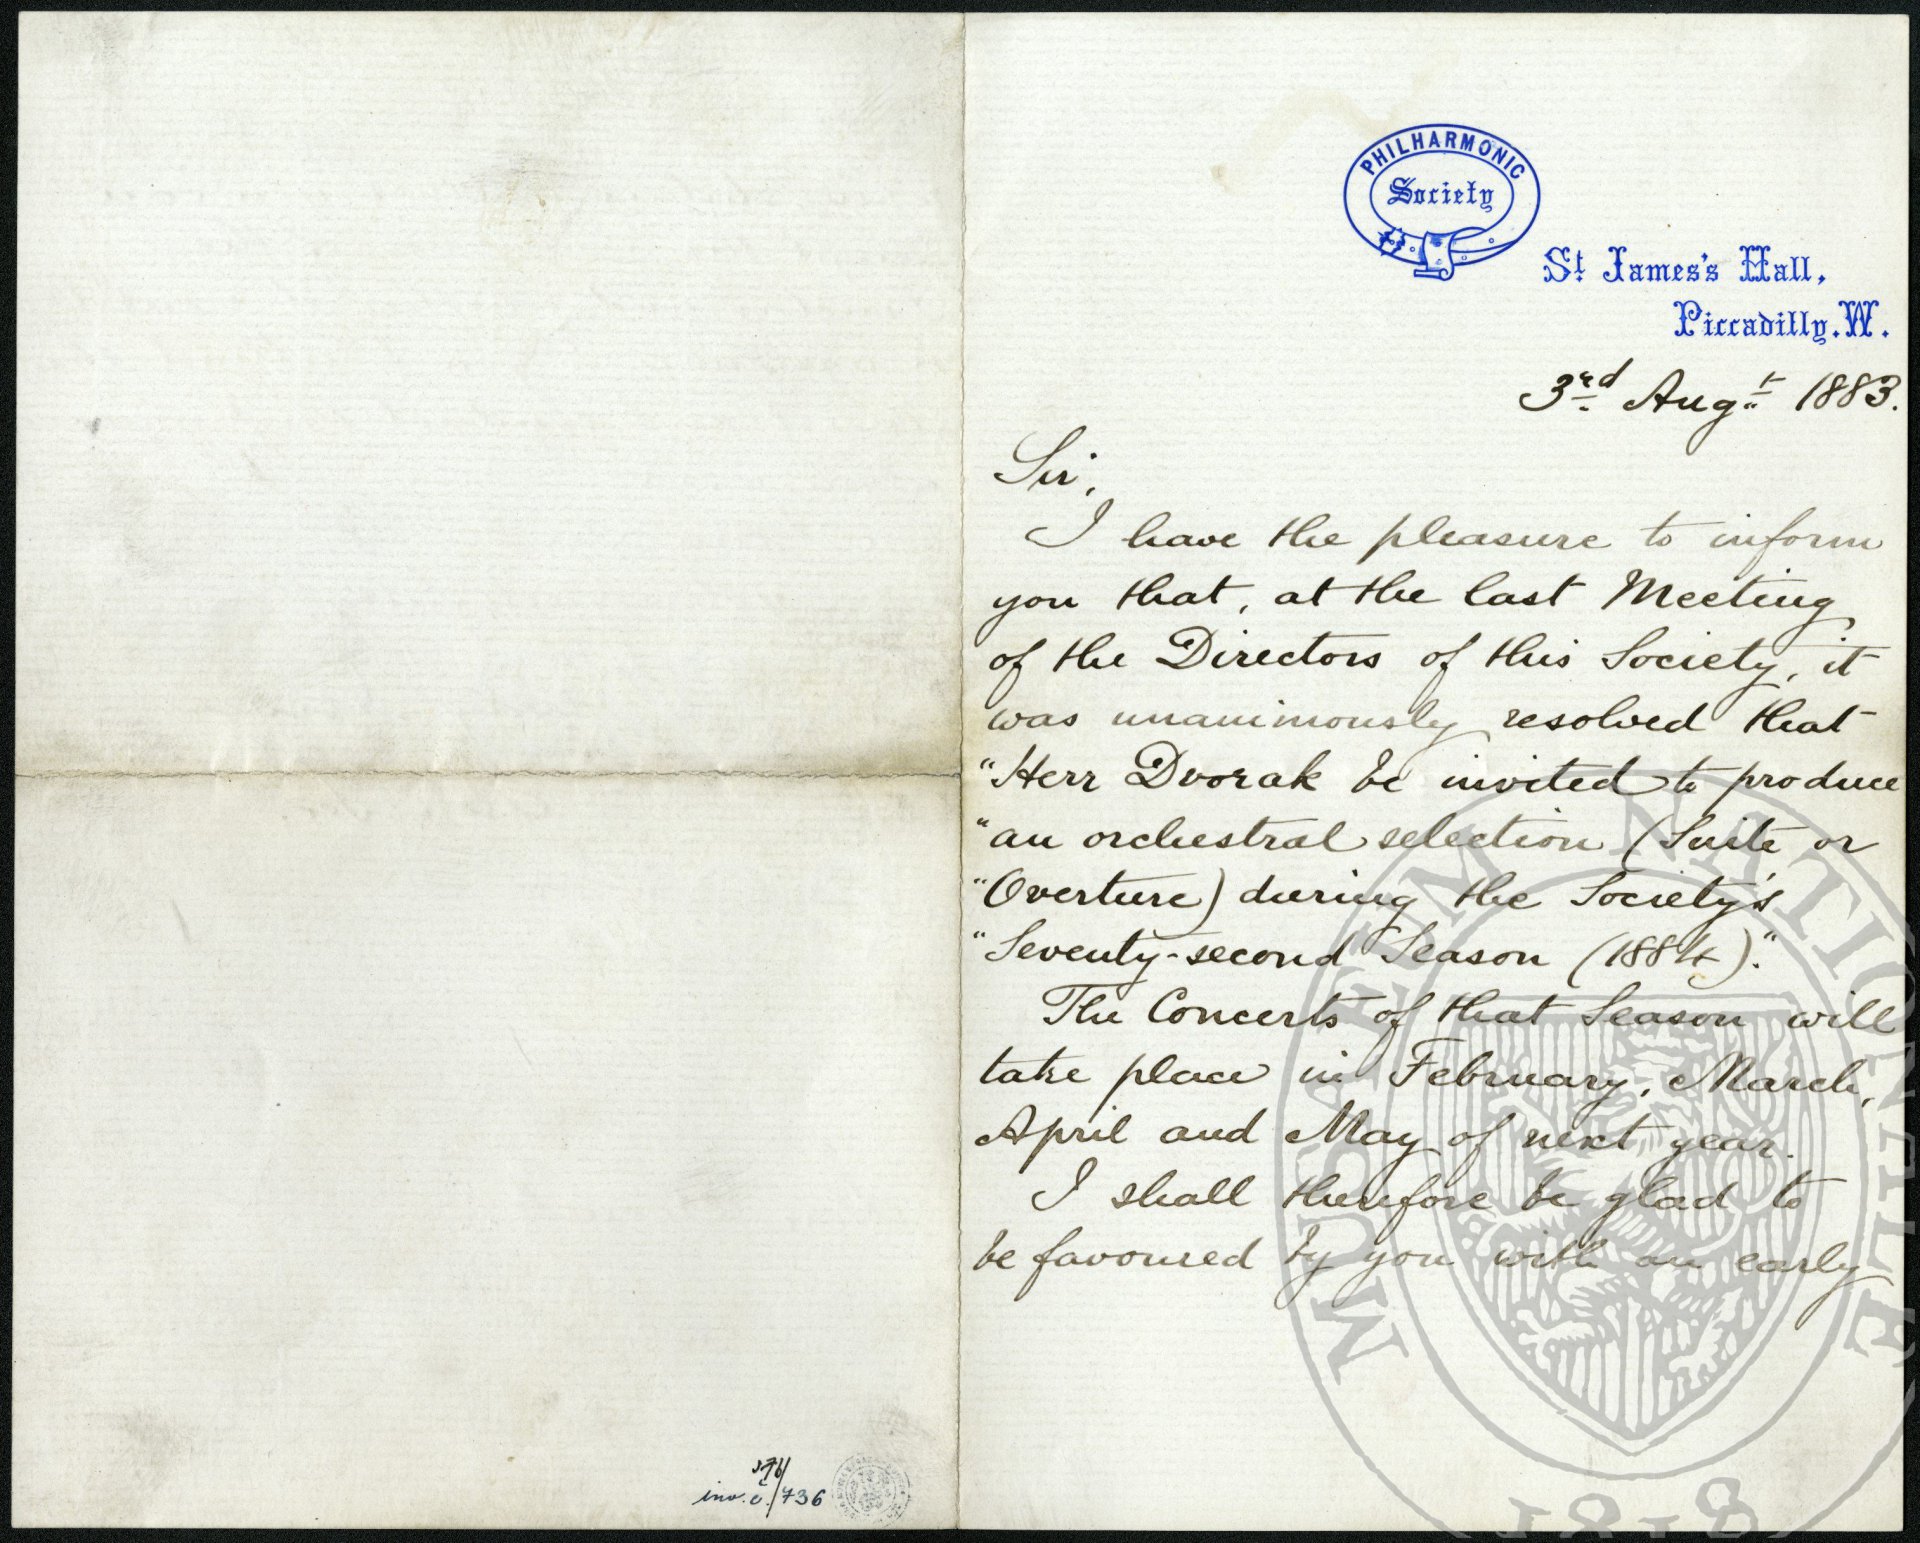 PHILHARMONIC
Society
St James's Hall,
Piccadilly. W.
3rd Augt 1883.
Sir,
I have the pleasure to inform
you that, at the last Meeting
of the Directors of this Society, it
was unanimously resolved that
"Herr Dvorak be invited to produce
"an orchestral selection (Suite or
"Overture) during the Society's
"Seventy-second Season (1884)."
The Concerts of that Season will
take place in February, March,
April and May of next year.
I shall therefore be glad to
be favoured by you with an early
inv. č. /736
MUSAEUM NATIONALE
1818